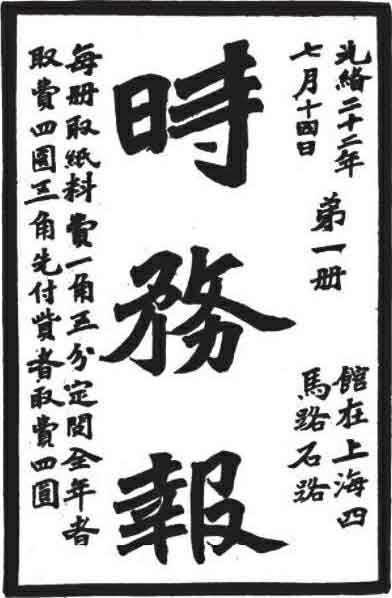 光緒二十二年
七月十四日
第一册
館在上海四
馬路石路
時務報
每册取紙料費一角五分定閱全年者
取費四圓五角先付貲者取費四圓